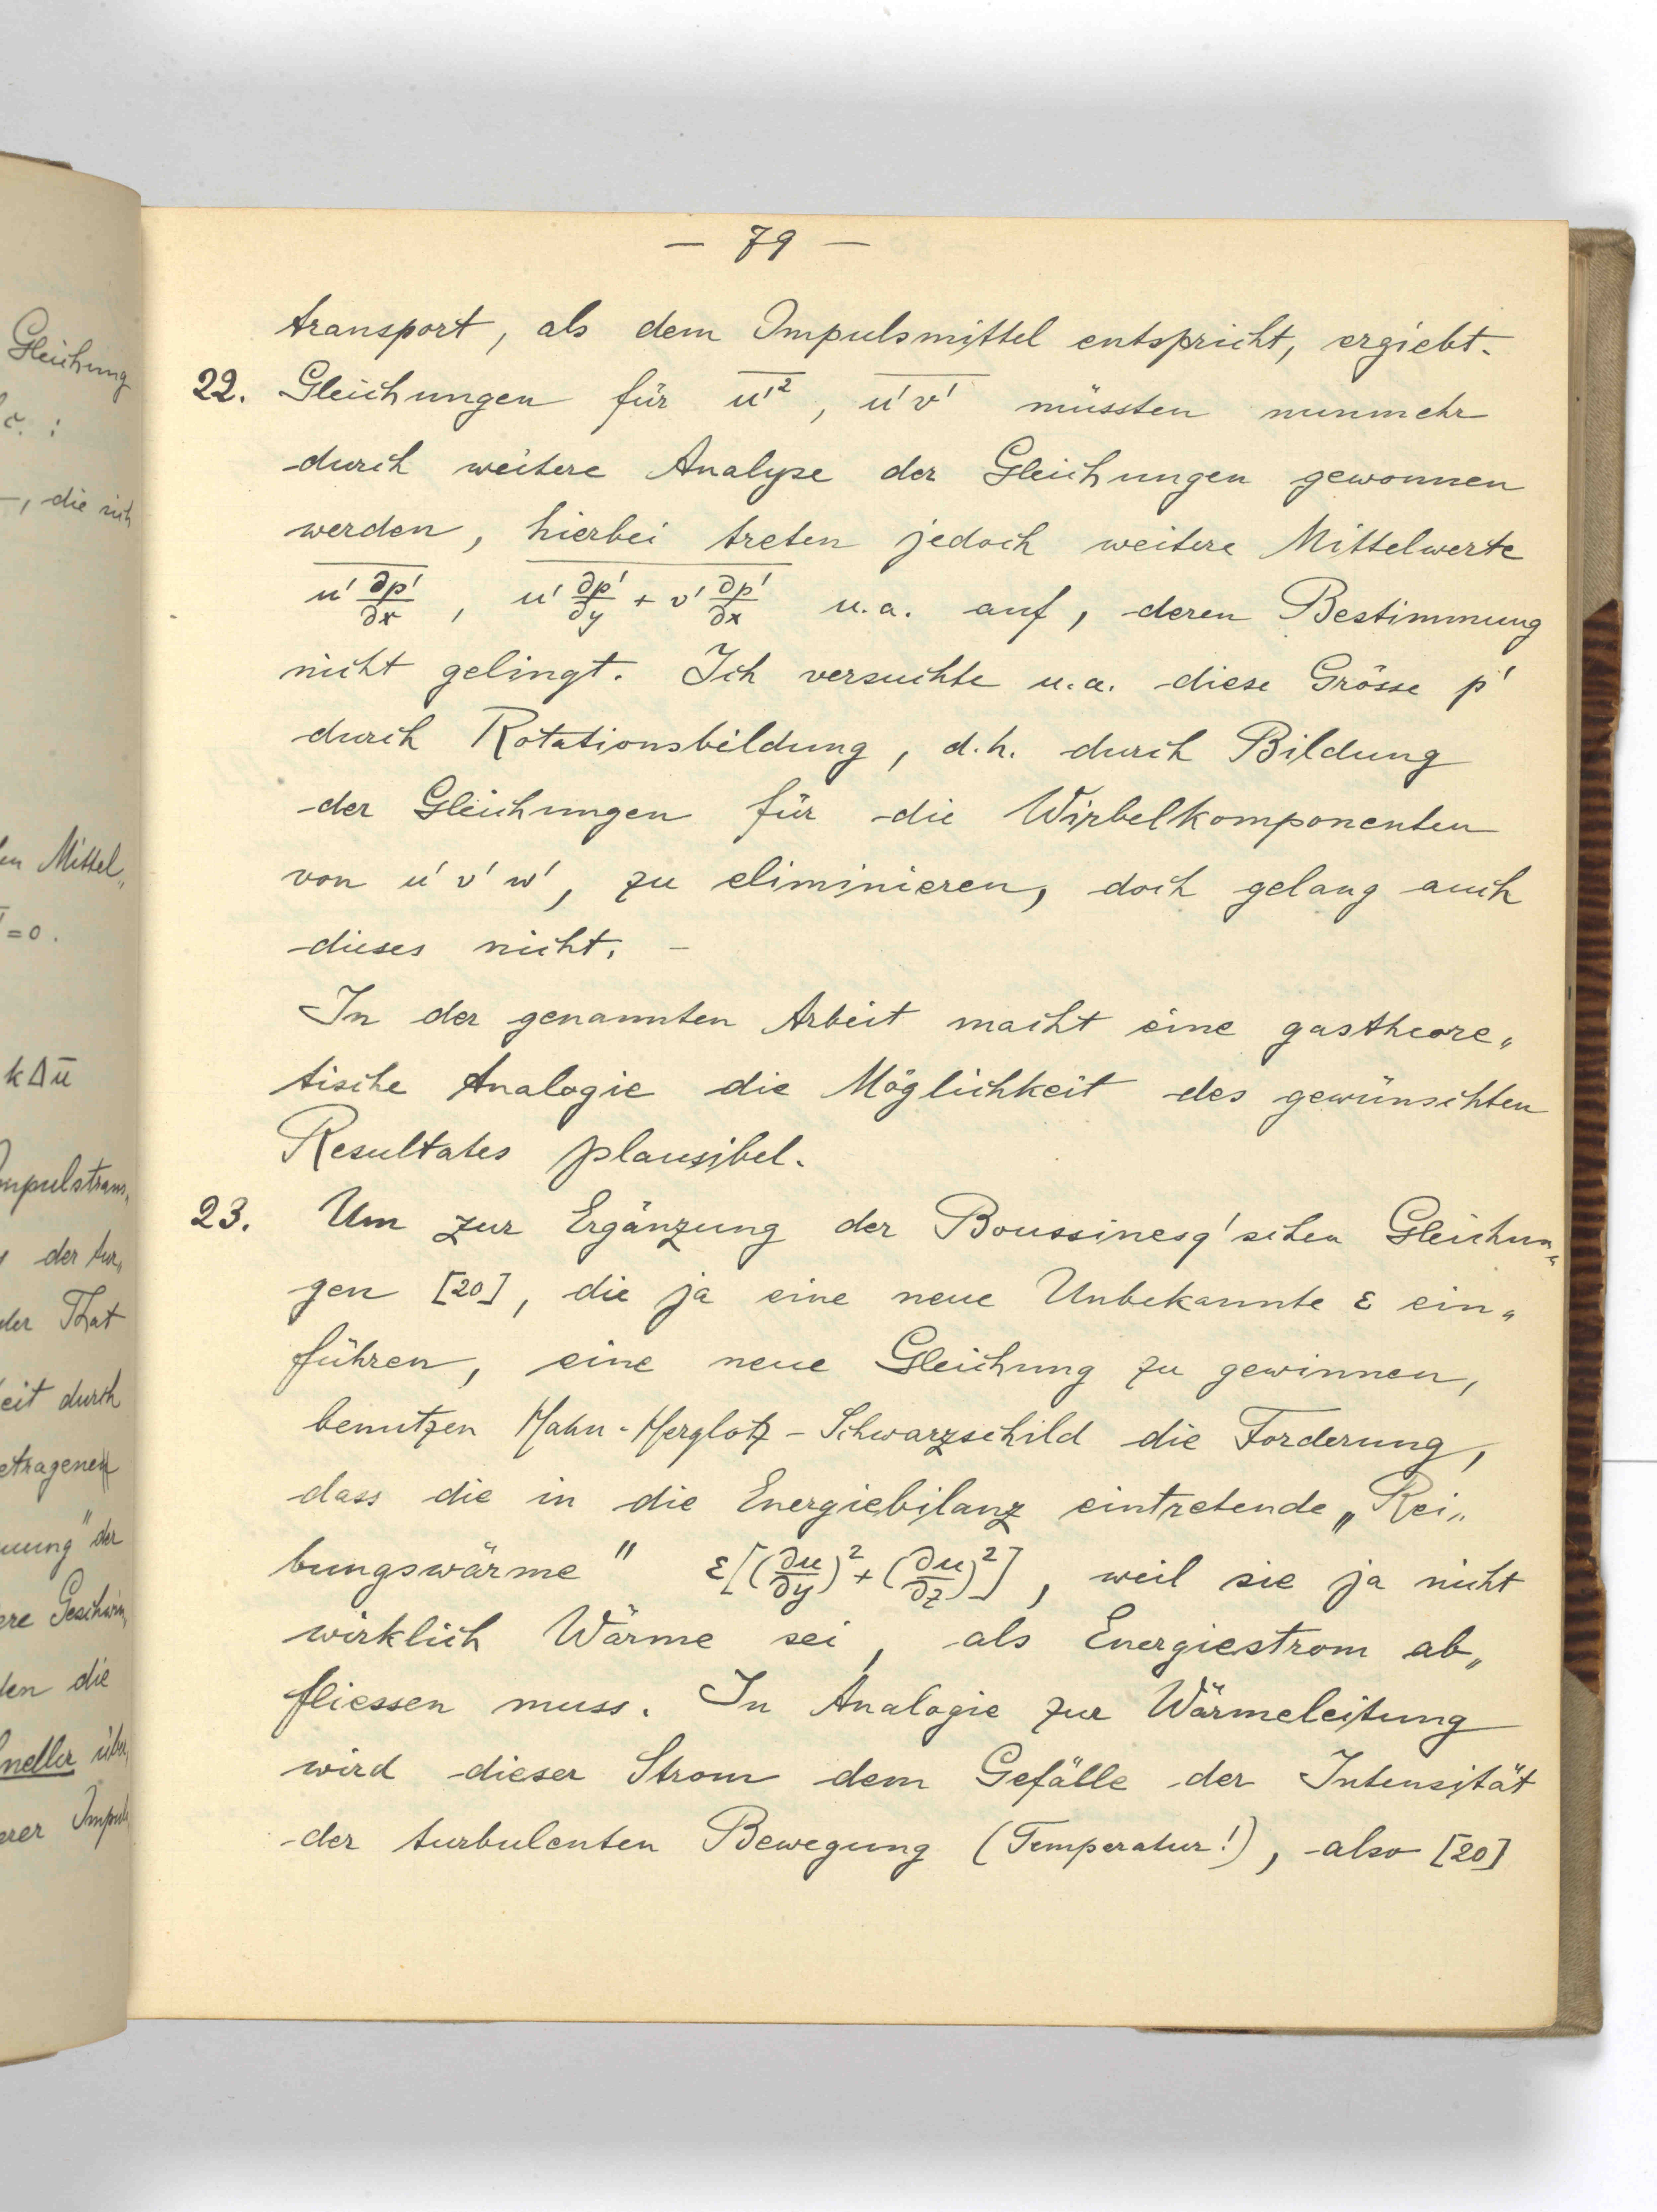 Gleichung
c. :
—, die sich
Mittel„
=0.
k∆ū
der tur„
der That
durch
der
die
über„
— 79 —
transport, als dem Impulsmittel entspricht, ergiebt.
22. Gleichungen für u'², u'v' müssten nunmehr
durch weitere Analyse der Gleichungen gewonnen
werden, hierbei treten jedoch weitere Mittelwerte
u' ∂p'/∂x , u' ∂p'/∂y + v' ∂p'/∂x u.a. auf, deren Bestimmung
nicht gelingt. Ich versuchte u.a. diese Grösse p'
durch Rotationsbildung, d.h. durch Bildung
der Gleichungen für die Wirbelkomponenten
von u' v' w', zu eliminieren, doch gelang auch
dieses nicht. –
In der genannten Arbeit macht eine gastheore„
tische Analogie die Möglichkeit des gewünschten
Resultates plausibel.
23. Um zur Ergänzung der Boussinesq'schen Gleichun„
gen [20], die ja eine neue Unbekannte ε ein„
führen, eine neue Gleichung zu gewinnen,
benutzen Hahn-Herglotz-Schwarzschild die Forderung,
dass die in die Energiebilanz eintretende „Rei„
bungswärme" ε[(∂u/∂y)² + (∂u/∂z)²], weil sie ja nicht
wirklich Wärme sei, als Energiestrom ab„
fliessen muss. In Analogie zur Wärmeleitung
wird dieser Strom dem Gefälle der Intensität
der turbulenten Bewegung (Temperatur!), also [20]